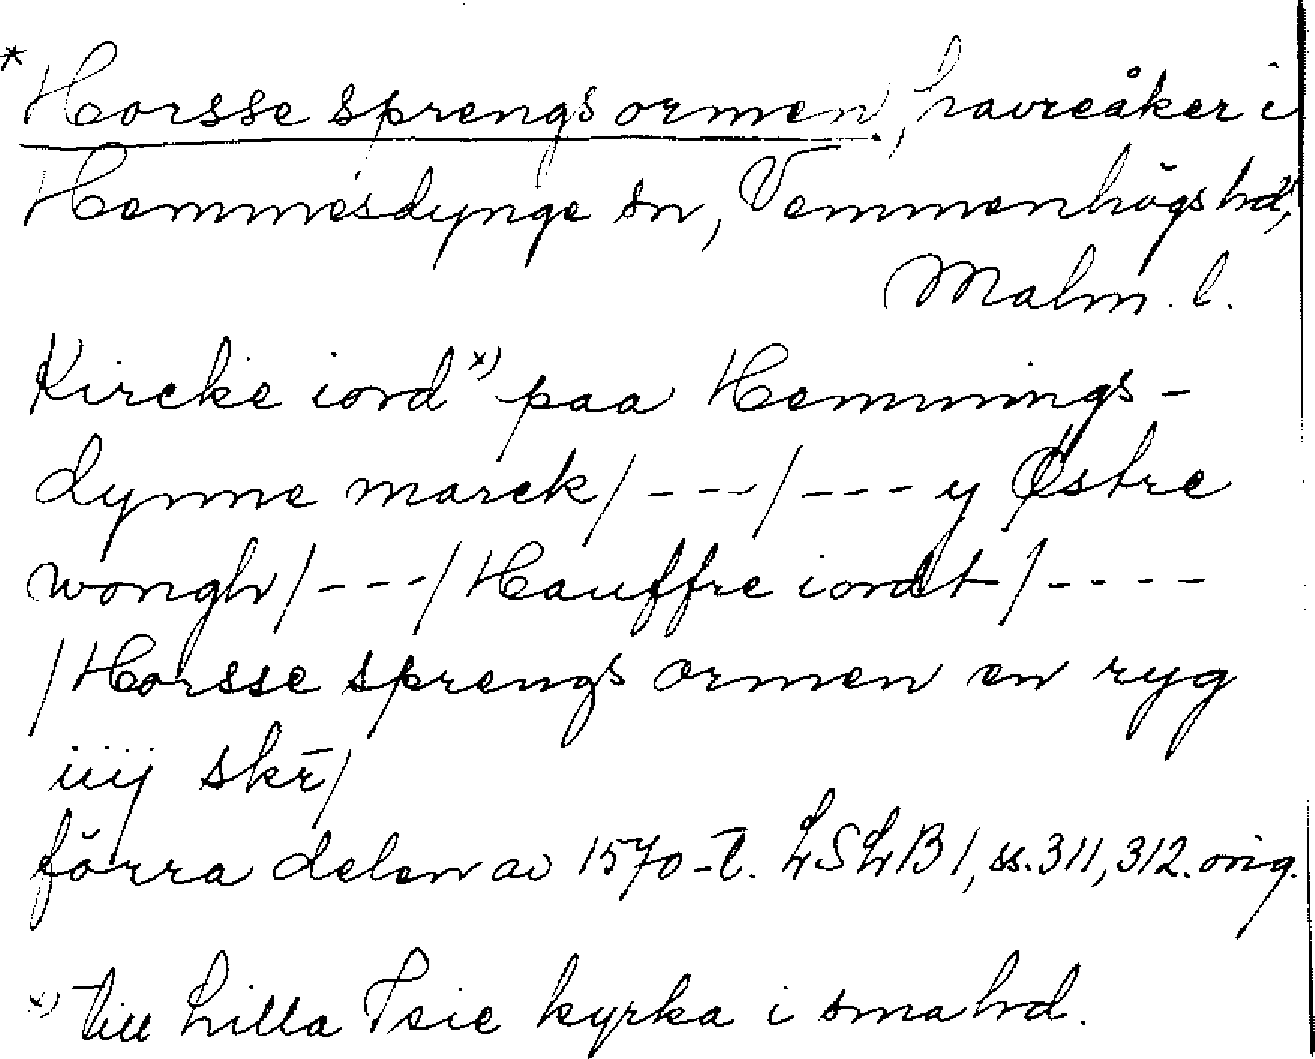 * Horsse sprengs ormen, havreåker i
Hemmesdynge sn, Vemmenhögs hd,
Malm. l.
Kircke iord x) paa Hemmings-
dynne marck/---/---y Østre
wongh/---/Hauffre iordt/----
/Horsse sprengs ormen en ryg
iiij skr̄/
förra delen av 1570-t. LSLB 1, ss. 311, 312. orig.
x) till Lilla Isie kyrka i sma hd.